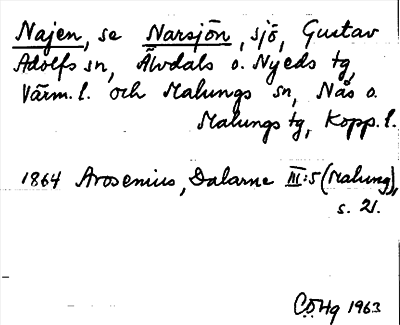 Najen, se Narsjön, sjö, Gustav
Adolfs sn, Älvdals o. Nyeds tg,
Värm. l. och Malungs sn, Nås o.
Malungs tg, Kopp. l.
1864 Arosenius, Dalarne III:5 (Malung),
s. 21.
CÖHg 1963